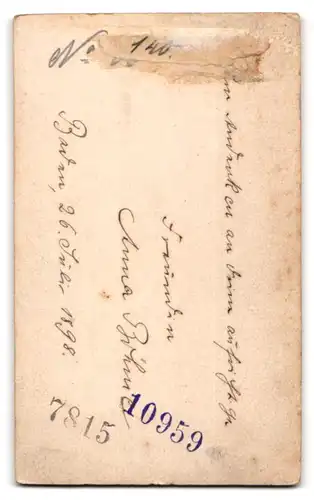 No 140.
Andenken an Deine aufrichtige
Freundin
Anna Böhm
Baden, 26. Juli 1898.
7815
10959